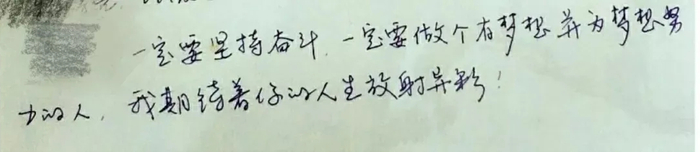 一定要坚持奋斗,一定要做个有梦想并为梦想努
力的人,我期待着你的人生放射异彩!